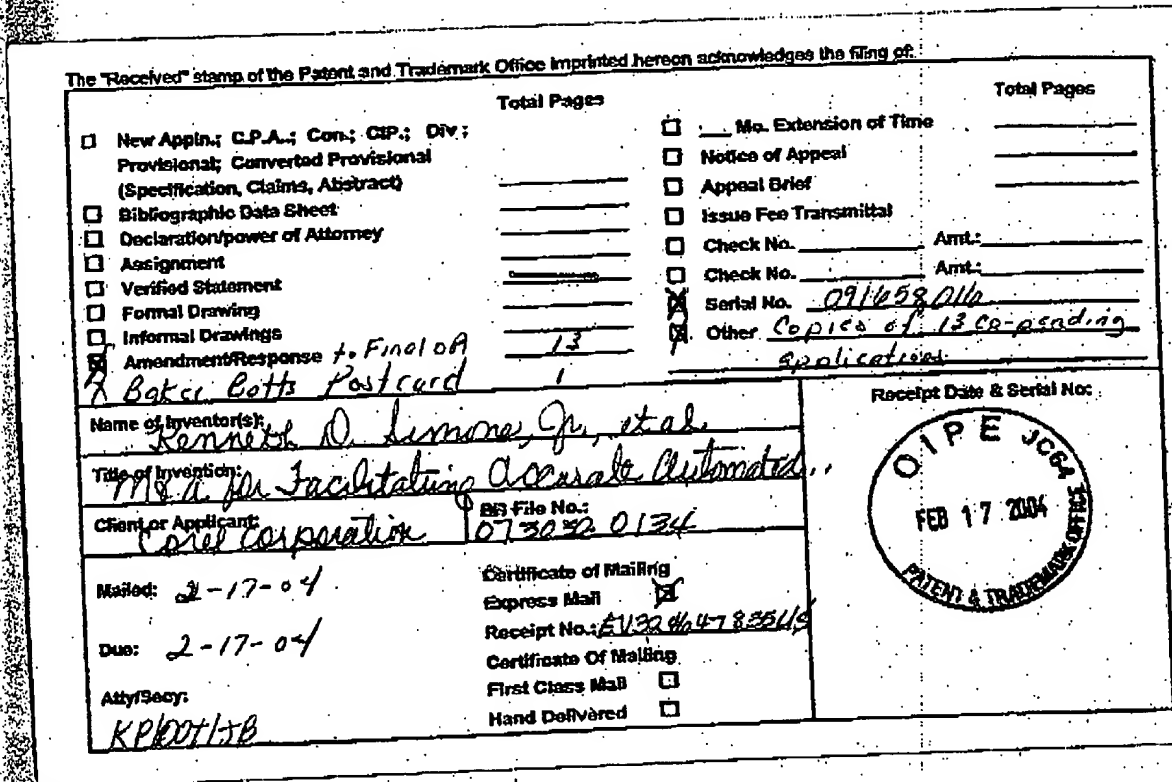 The "Received" stamp of the Patent and Trademark Office imprinted hereon acknowledges the filing of:
Total Pages
New Appln.; C.P.A.; Con.; CIP.; Div.;
Provisional; Converted Provisional
(Specification, Claims, Abstract)
Bibliographic Data Sheet
Declaration/power of Attorney
Assignment
Verified Statement
Formal Drawing
Informal Drawings
Amendment/Response to Final OA 13
Baker Botts Postcard 1
Total Pages
___ Mo. Extension of Time
Notice of Appeal
Appeal Brief
Issue Fee Transmittal
Check No. ___ Amt.: ___
Check No. ___ Amt.: ___
Serial No. 09/658,016
Other Copies of 13 co-pending
applications
Name of Inventor(s):
Kenneth D. Simone, Jr., et al.
Title of Invention:
M & A for Facilitating Accurate Automated..
Client or Applicant:
Corel Corporation
BB File No.:
073030 0134
Receipt Date & Serial No:
OIPE JC64
FEB 17 2004
PATENT & TRADEMARK OFFICE
Mailed: 2-17-04
Due: 2-17-04
Atty/Secy:
Certificate of Mailing
Express Mail
Receipt No.:
Certificate Of Mailing
First Class Mail
Hand Delivered